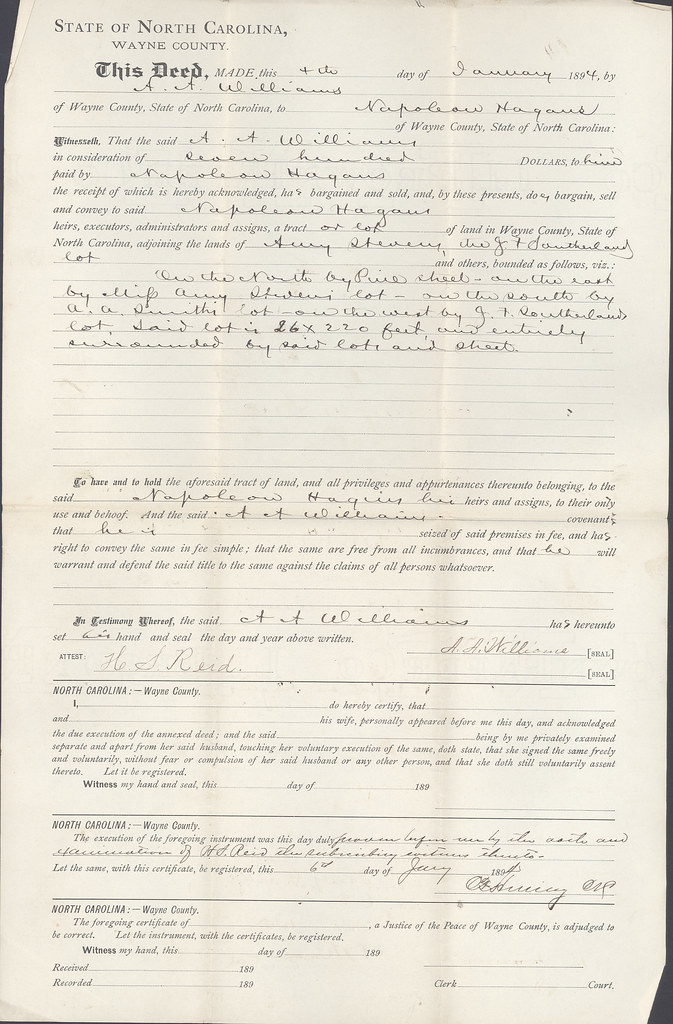 STATE OF NORTH CAROLINA,
WAYNE COUNTY.
This Deed, MADE this 4th day of January 1894, by
A. A. Williams
of Wayne County, State of North Carolina, to Napoleon Hagans
of Wayne County, State of North Carolina:
Witnesseth, That the said A. A. Williams
in consideration of seven hundred DOLLARS, to him
paid by Napoleon Hagans
the receipt of which is hereby acknowledged, has bargained and sold, and, by these presents, does bargain, sell
and convey to said Napoleon Hagans
heirs, executors, administrators and assigns, a tract or lot of land in Wayne County, State of
North Carolina, adjoining the lands of Amy Stevens, the J. F. Southerland
lot and others, bounded as follows, viz.:
On the North by Pine street - on the east
by Miss Amy Stevens lot - on the south by
A. A. Smiths lot - on the west by J. F. Southerlands
lot. Said lot is 26 x 220 feet, and entirely
surrounded by said lots and street.
To have and to hold the aforesaid tract of land, and all privileges and appurtenances thereunto belonging, to the
said Napoleon Hagins his heirs and assigns, to their only
use and behoof. And the said A A Williams covenants
that he is seized of said premises in fee, and has
right to convey the same in fee simple; that the same are free from all incumbrances, and that he will
warrant and defend the said title to the same against the claims of all persons whatsoever.
In Testimony Whereof, the said A A Williams has hereunto
set his hand and seal the day and year above written.
A. A. Williams [SEAL]
ATTEST: H. S. Reid. [SEAL]
NORTH CAROLINA:—Wayne County.
I, do hereby certify, that
and his wife, personally appeared before me this day, and acknowledged
the due execution of the annexed deed; and the said being by me privately examined
separate and apart from her said husband, touching her voluntary execution of the same, doth state, that she signed the same freely
and voluntarily, without fear or compulsion of her said husband or any other person, and that she doth still voluntarily assent
thereto. Let it be registered.
Witness my hand and seal, this day of 189
NORTH CAROLINA:—Wayne County.
The execution of the foregoing instrument was this day duly proven before me by the oath and
examination of H. S. Reid the subscribing witness thereto.
Let the same, with this certificate, be registered, this 6th day of Jany 1894
NORTH CAROLINA:—Wayne County.
The foregoing certificate of , a Justice of the Peace of Wayne County, is adjudged to
be correct. Let the instrument, with the certificates, be registered.
Witness my hand, this day of 189
Received 189
Recorded 189 Clerk Court.